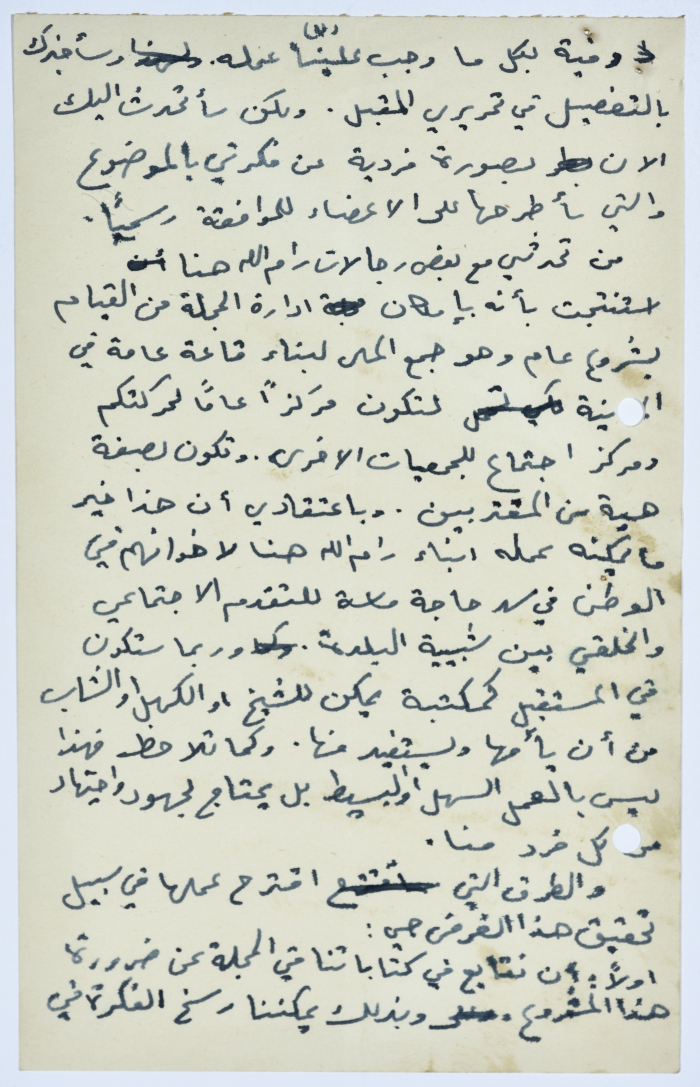 وفية لكل ما وجب علينا عمله. وسأخبرك
بالتفصيل في تحريري المقبل. ولكن سأتحدث اليك
الان بصورة فردية عن فكرتي بالموضوع
والتي سأطرحها على الاعضاء للموافقة رسمياً.
من تحدثي مع بعض رجالات رام الله هنا
استنتجت بأنه بإمكان ادارة المجلة من القيام
بمشروع عام وهو جمع المال لبناء قاعة عامة في
المدينة لتكون مركزاً عاماً لحركتكم
ومركز اجتماع للجمعيات الاخرى. وتكون بصفة
هبة من المغتربين. وباعتقادي أن هذا خير
ما يمكنه عمله ابناء رام الله هنا لاخوانهم في
الوطن في سد حاجة ماسة للتقدم الاجتماعي
والخلقي بين شبيبة البلدة. وربما ستكون
في المستقبل كمكتبة يمكن للشيخ او الكهل او الشاب
من أن يأمها ويستفيد منها. وكما تلاحظ فهذا
ليس بالعمل السهل او البسيط بل يحتاج لجهود واجتهاد
من كل فرد منا.
والطرق التي اقترح عملها في سبيل
تحقيق هذا الغرض هي:
اولاً: أن نتابع في كتاباتنا في المجلة عن ضرورة
هذا المشروع وبذلك يمكننا رسخ الفكرة في